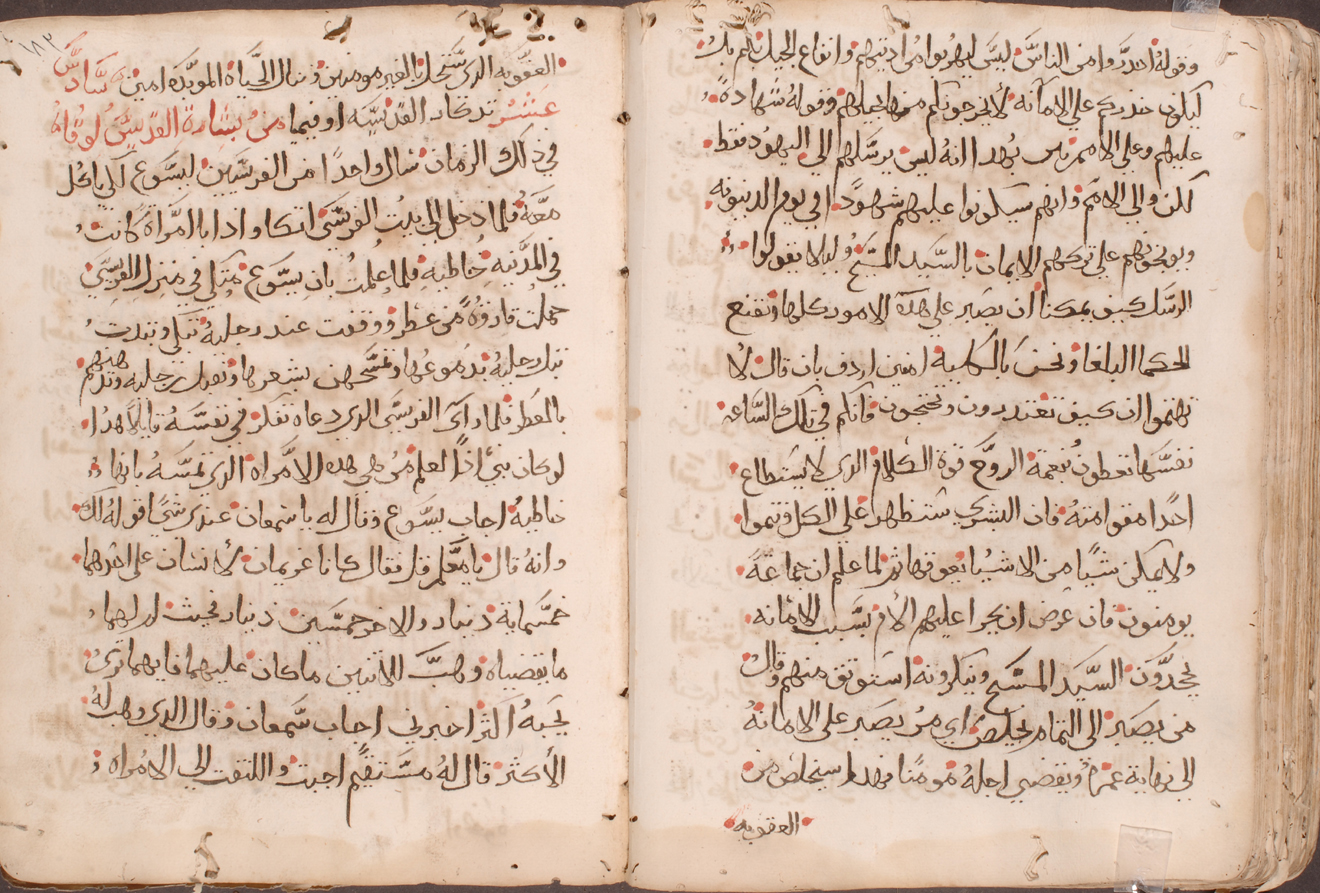 وقوله احدروا من الناس ليس ليهربوا من اديتهم وانقاع الحيل بكم بل
ليكون حدركم علي الامانه لأ يخرجونكم منها بحيلهم وقوله شهادة
عليهم وعلي الامم يبين بهدا انه ليس يرسلهم الي اليهود فقط
لكن والي الامم وانهم سيكونوا عليهم شهودًا في يوم الدينونه
ويوبخونهم علي تركهم الايمان بالسيد المسيح وليلا يقولوا
الرسل كيف يمكنا ان نصبر علي هده الامور كلها ونقنع
الحكما البلغا ونحن بالكليه اميين اردف بان قال لا
تهتموا ان كيف تعتدرون وتحتجون فانكم في تلك الساعه
نفسها تعطون نعمة الروح قوة الكلام الدي لا يستطاع
احدا مقوامته فان البشري ستظهر علي الكل وتموا
ولا يمكن شيًا من الاشيا يعوقها ثم لما علم ان جماعة
يومنون فان عرض ان يجرا عليهم الألم بسبب الامانه
يجحدون السيد المسيح وينكرونه استوتق منهم وقال
من يصبر الي التمام يخلص اي من يصبر علي الامانة
الي نهاية عمره ويقضي اجله مومنًا فهدا سيخلص من
العقوبه
١٨٢
العقوبه الدي ستحل بالغير مومنين وينال الحياة الموبده امين سادس
عشر تدكار القديسه اوفيميا من بشارة القديس لوقاه
في دلك الزمان سال واحدًا من الفريسيين ليسوع لكي ياكل
معه فلما دخل الي بيت الفريسي اتكا وادا بامراة كانت
في المدينه خاطيه فلما علمت بان يسوع متكي في منزل الفريسي
حملت قارورة من عطر ووقفت عند رجليه تبكي وبدت
تبل رجليه بدموعها وتمسحهن بشعرها وتقبل رجليه وتدهنهم
بالعطر فلما راي الفريسي الدي دعاه تفكر في نفسه قايلاً هدا
لو كان نبي ادًا لعلم من هي هده الامراه الدي تمسه بانها
خاطيه اجاب يسوع وقال له يا سمعان عندي شيًا اقوله لك
وانه قال يا معلم قل فقال كانا غريمان لأنسان علي احدهما
خمسماية دينار والاخر خمسين دينار فحيت لم لهما
ما يقضياه وهب للاتنين ما كان عليهما فايهما تري
يحبه اكتر اخبرني اجاب سمعان وقال الدي وهب له
الأكتر قال له مستقيم اجبت واللتفت الي الامراه